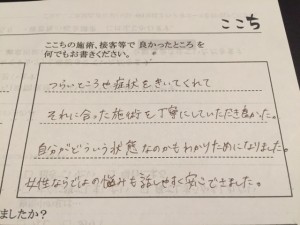 ここち
ここちの施術、接客等で良かったところを
何でもお書きください。
つらいところや症状をきいてくれて
それに合った施術を丁寧にしていただき良かった。
自分がどういう状態なのかもわかりためになりました。
女性ならではの悩みも話しやすく安心できました。
ましたか？